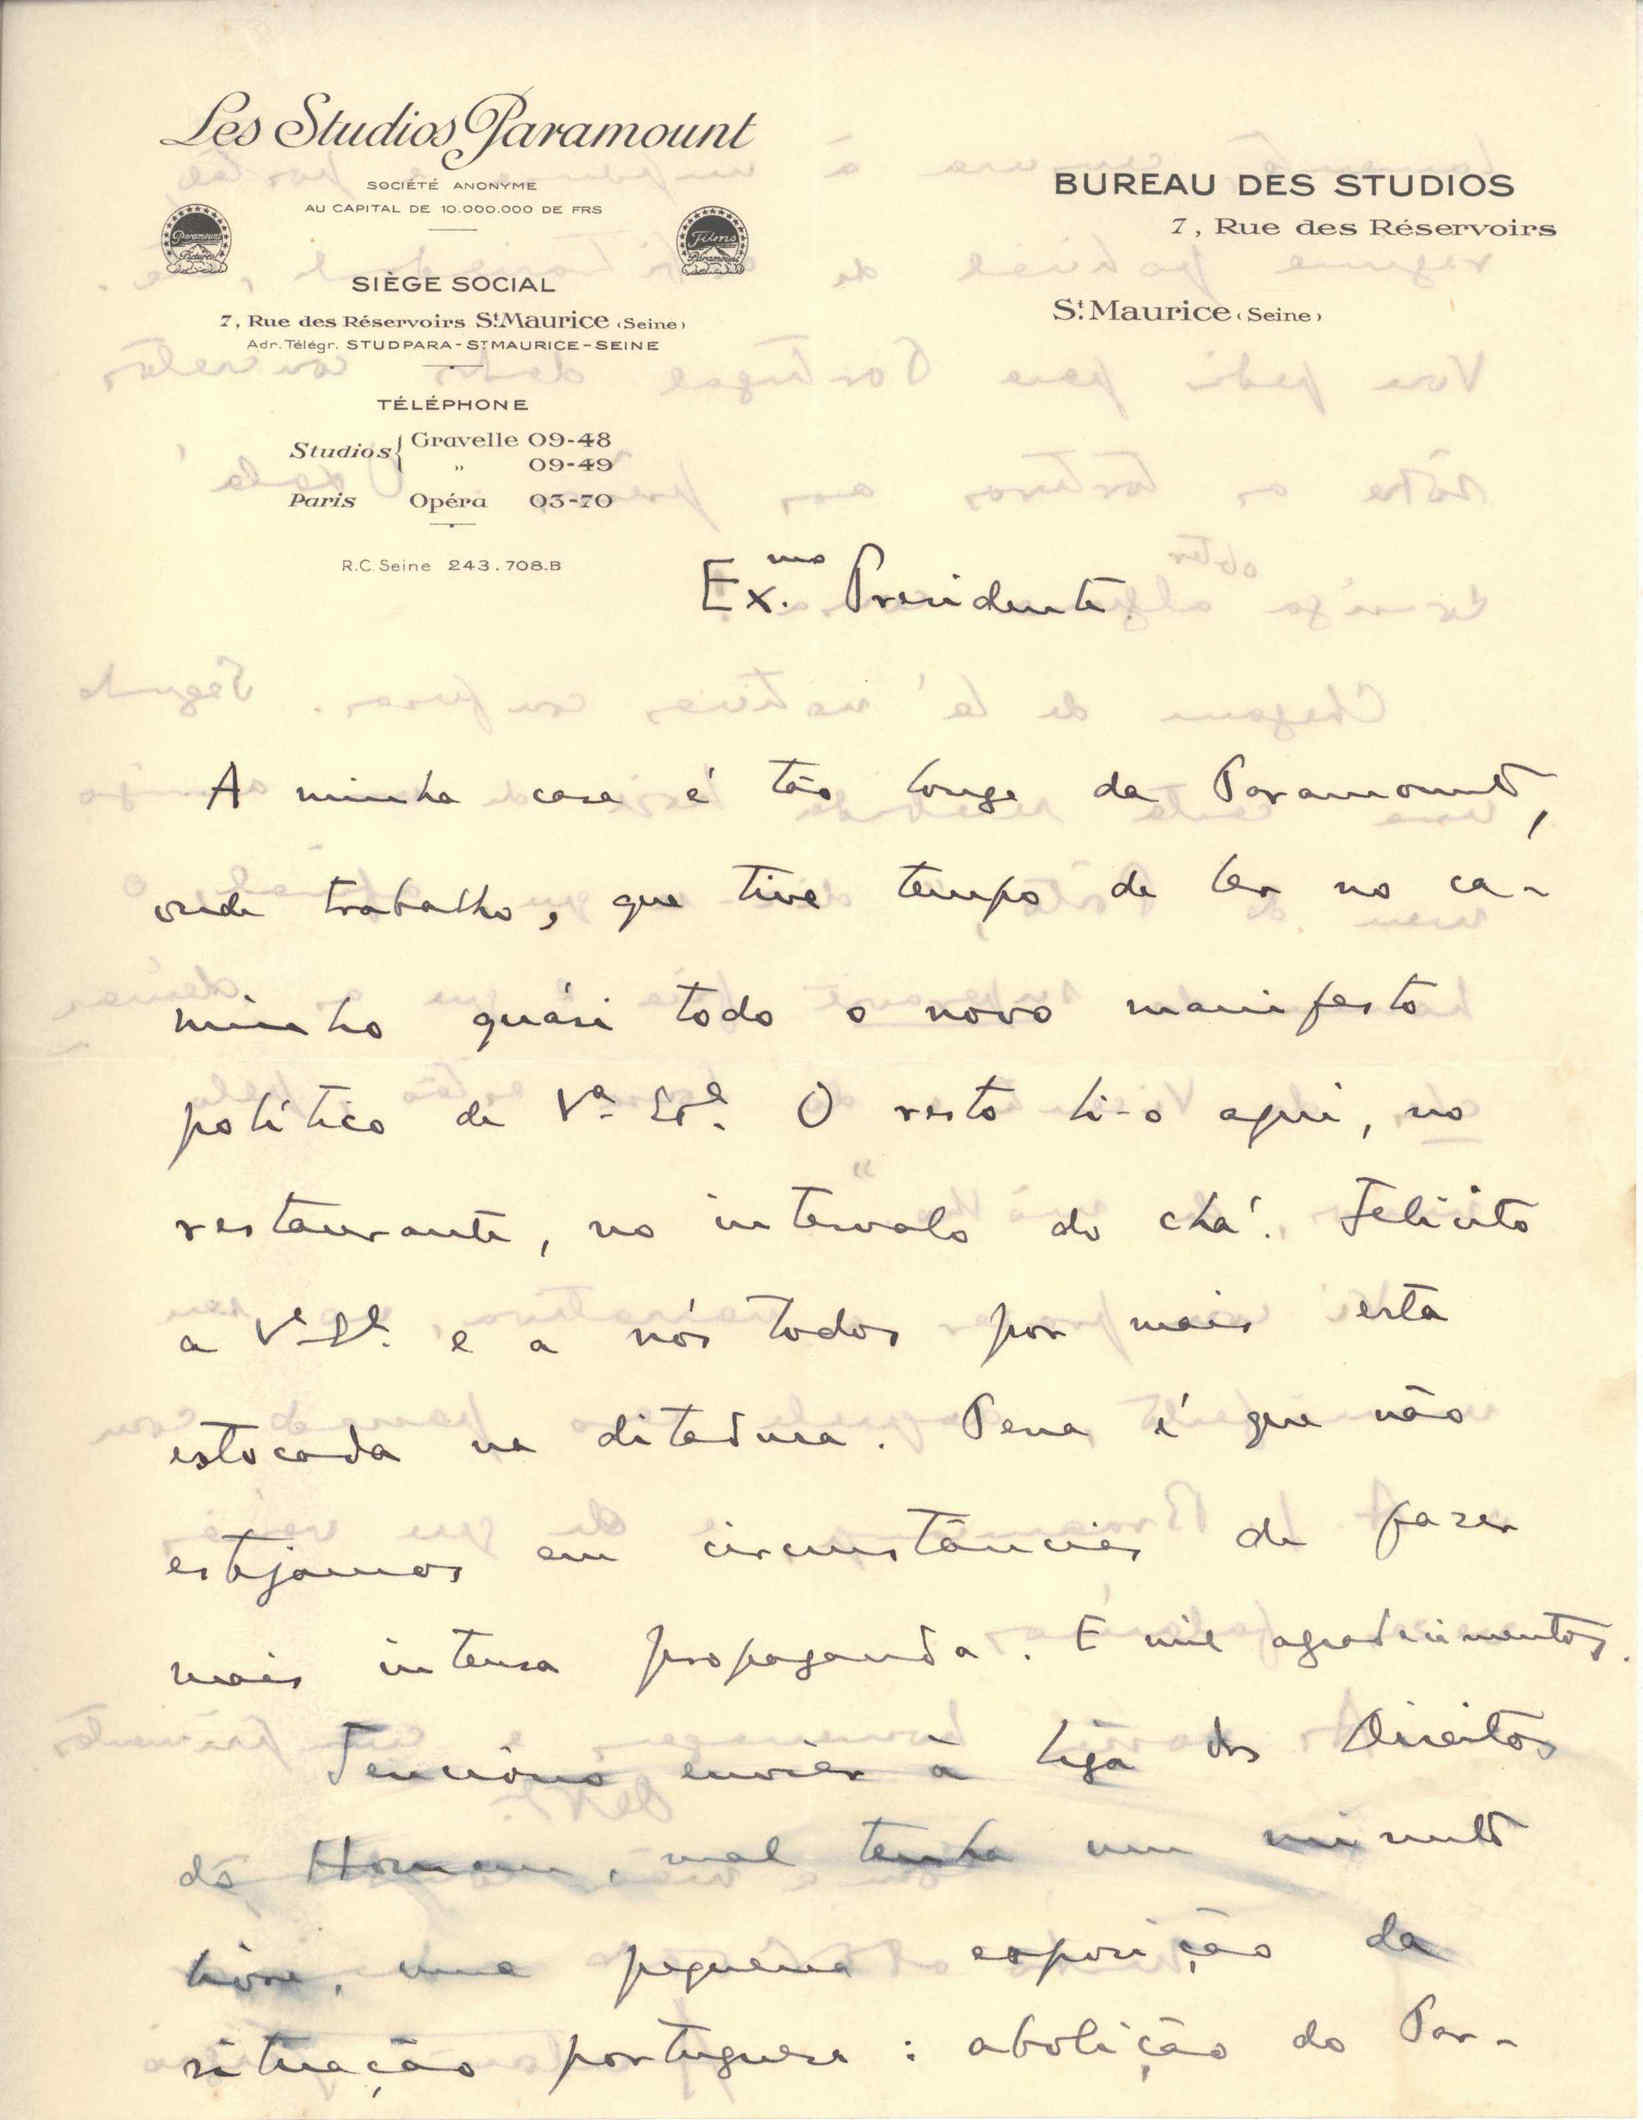 Les Studios Paramount
SOCIÉTÉ ANONYME
AU CAPITAL DE 10.000.000 DE FRS
Paramount Pictures
Films Paramount
SIÈGE SOCIAL
7, Rue des Réservoirs St. Maurice (Seine)
Adr. Télégr. STUDPARA-ST MAURICE-SEINE
TÉLÉPHONE
Studios { Gravelle 09-48
" 09-49
Paris Opéra 03-70
R.C. Seine 243.708.B
BUREAU DES STUDIOS
7, Rue des Réservoirs
St. Maurice (Seine)
Ex.mo Presidente
A minha casa é tão longe da Paramount,
onde trabalho, que tive tempo de ler no ca-
minho quási todo o novo manifesto
político de Vª. Exª. O resto li-o aqui, no
restaurante, no intervalo do chá. Felicito
a Vª Exª. e a nós todos por mais esta
estocada na ditadura. Pena é que não
estejamos em circunstâncias de fazer
mais intensa propaganda. E mil agradecimentos.
Tenciono enviar à Liga dos Direitos
do Homem, mal tenha um minuto
livre, uma pequena exposição da
situação portuguesa: abolição do Par-